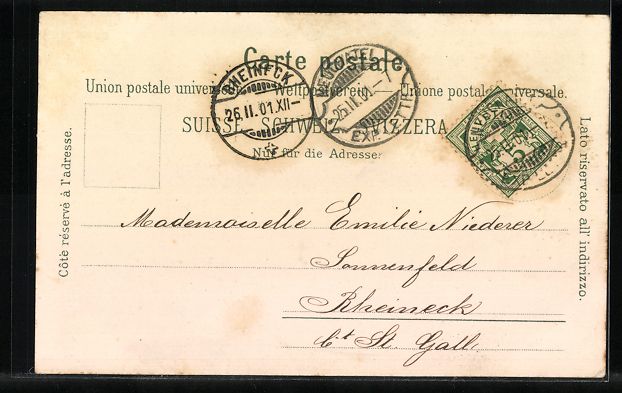 Carte postale.
Union postale universelle. — Weltpostverein. — Unione postale universale.
SUISSE. SCHWEIZ. SVIZZERA.
Nur für die Adresse.
Côté réservé à l'adresse.
Lato riservato all' indirizzo.
RHEINECK
26.II.01.XII—
NEUCHATEL
25.II.01.—7
EXP. LETT.
5
Mademoiselle Emilie Niederer
Sonnenfeld
Rheineck
Ct St. Gall.